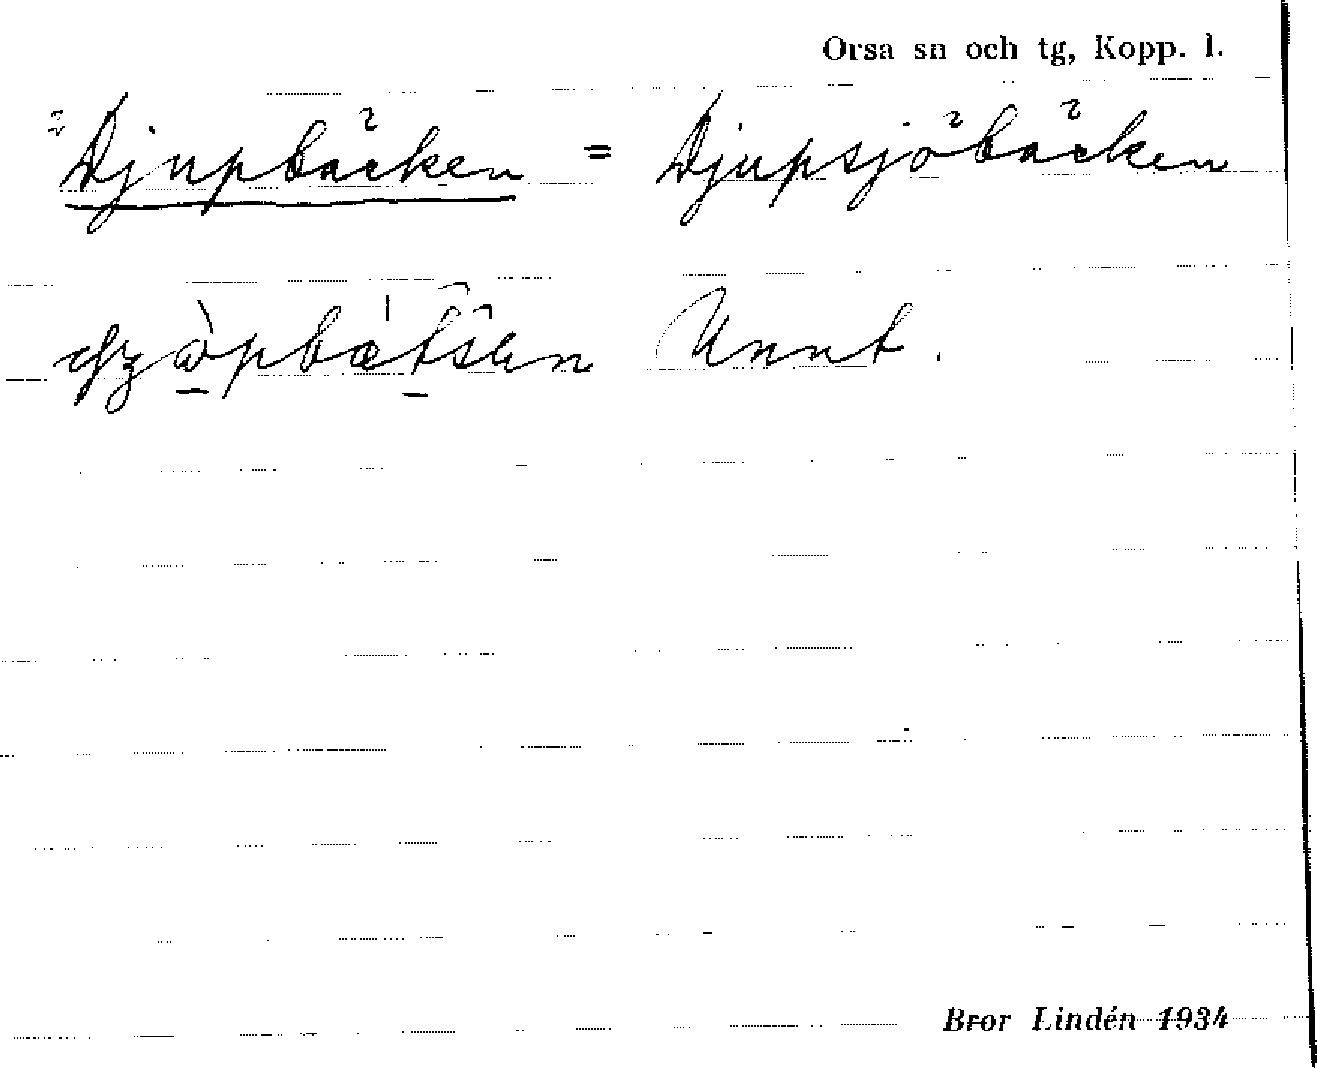 Orsa sn och tg, Kopp. l.
Djupbäcken = Djupsjöbäcken
Unnt.
Bror Lindén 1934